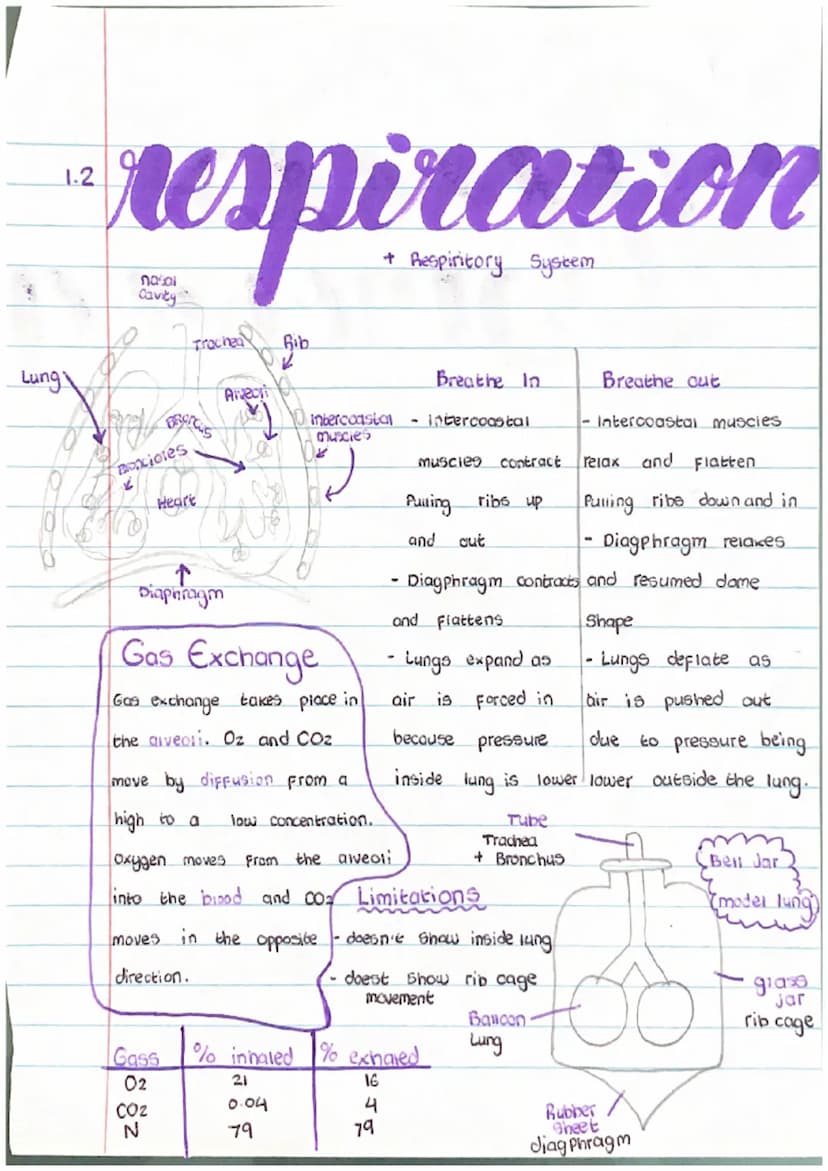 1.2 respiration
+ Respiritory System
nasal
Cavity
Trachea
Rib
Lung
Alveoli
Broncus
Intercoastal
muscles
Broncioles
Heart
Diaphragm
Breathe In
- Intercoastal
muscles contract
Pulling ribs up
and out
- Diagphragm contracts
and flattens
- Lungs expand as
air is forced in
because pressure
inside lung is lower
Breathe out
- Intercoastal muscles
relax and flatten
Pulling ribs down and in
- Diagphragm relaxes
and resumed dome
Shape
- Lungs deflate as
air is pushed out
due to pressure being
lower outside the lung.
Gas Exchange
Gas exchange takes place in
the alveoli. O2 and CO2
move by diffusion from a
high to a low concentration.
Oxygen moves from the alveoli
into the blood and CO2
moves in the opposite
direction.
Limitations
- doesn't show inside lung
- doest show rib cage
movement
Tube
Trachea
+ Bronchus
Bell Jar
(model lung)
glass
jar
rib cage
Balloon
Lung
Rubber
sheet
diagphragm
Gass % inhaled % exhaled
O2 21 16
CO2 0.04 4
N 79 79